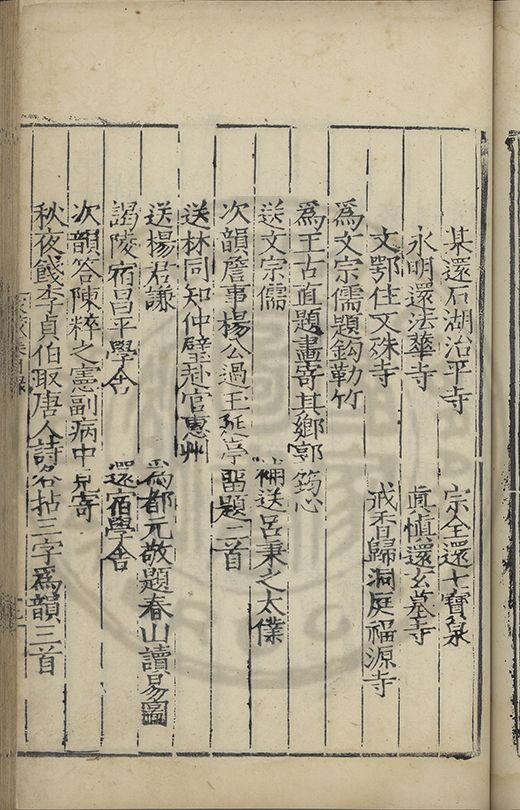 某還石湖治平寺　宗全還七寶泉
永明還法華寺　真慎還玄墓寺
文鄂住文殊寺　戒香歸洞庭福源寺
為文宗儒題鈎勒竹
為王古直題畫寄其鄉郭筠心
送文宗儒　補送呂秉之太僕
次韻詹事楊公過玉延亭畱題二首
送林同知仲璧赴官惠州
送楊君謙　為都元敬題春山讀易圖
謁陵宿昌平學舍　還宿學舍
次韻答陳粹之憲副病中見寄
秋夜餞李貞伯取唐人詩各拈三字為韻三首